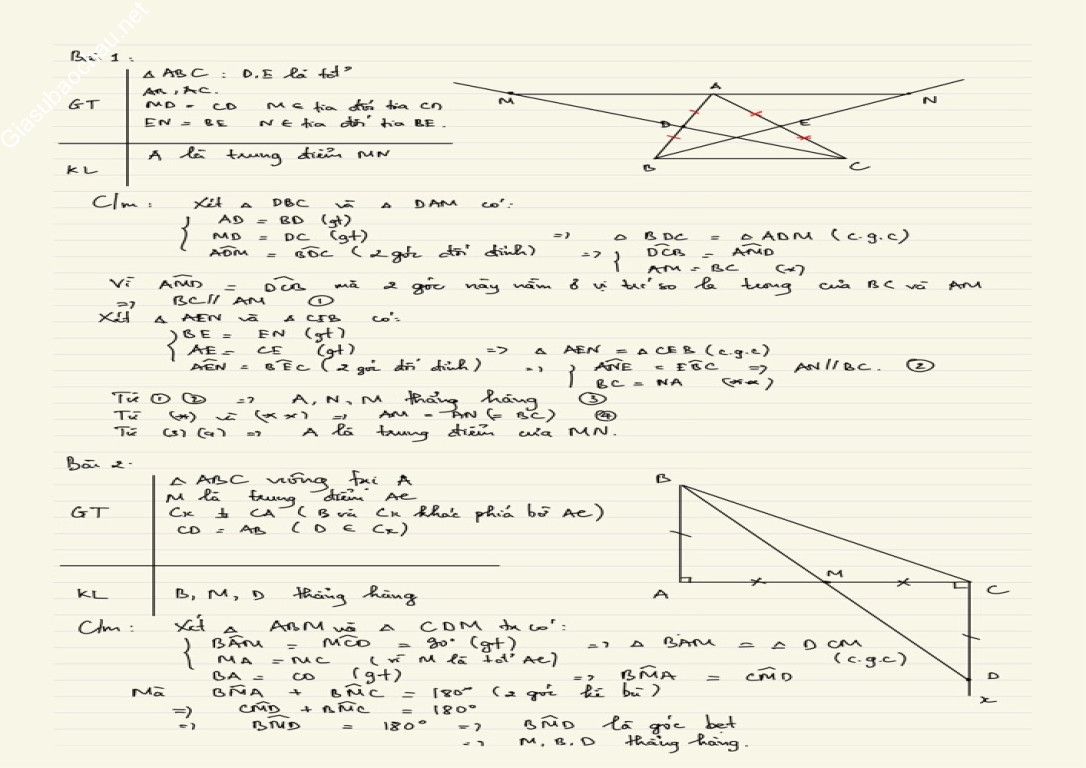 Giasubaochau.net
Bài 1:
GT
Δ ABC : D, E là tđ²
AB, AC.
MD = CD M ∈ tia đối tia CD
EN = BE N ∈ tia đối tia BE.
KL
A là trung điểm MN
M A N D E B C
C/m: Xét Δ DBC và Δ DAM có:
{ AD = BD (gt)
MD = DC (gt) => Δ BDC = Δ ADM (c.g.c)
ADM = BDC (2 góc đối đỉnh) => { DCB = AMD
AM = BC (*)
Vì AMD = DCB mà 2 góc này nằm ở vị trí so le trong của BC và AM
=> BC // AM ①
Xét Δ AEN và Δ CEB có:
{ BE = EN (gt)
AE = CE (gt) => Δ AEN = Δ CEB (c.g.c)
AEN = BEC (2 góc đối đỉnh) => { ANE = EBC => AN // BC. ②
BC = NA (**)
Từ ① ② => A, N, M thẳng hàng ③
Từ (*) và (**) => AM = AN (= BC) ④
Từ (3) (4) => A là trung điểm của MN.
Bài 2.
GT
Δ ABC vuông tại A
M là trung điểm AC
Cx ⊥ CA (B và Cx khác phía bờ AC)
CD = AB (D ∈ Cx)
KL
B, M, D thẳng hàng
B A M C D x
C/m: Xét Δ ABM và Δ CDM ta có:
{ BAM = MCD = 90° (gt) => Δ BAM = Δ DCM
MA = MC (vì M là tđ² AC) (c.g.c)
BA = CD (gt) => BMA = CMD
Mà BMA + BMC = 180° (2 góc kề bù)
=> CMD + BMC = 180°
=> BMD = 180° => BMD là góc bẹt
=> M, B, D thẳng hàng.